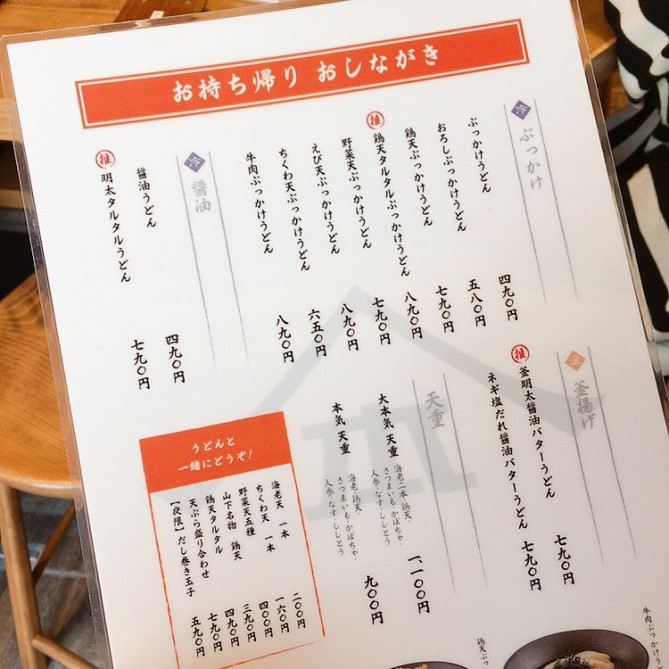 お持ち帰り おしながき
ぶっかけ
ぶっかけうどん 四九〇円
おろしぶっかけうどん 五八〇円
鶏天ぶっかけうどん 七九〇円
推 鶏天タルタルぶっかけうどん 八九〇円
野菜天ぶっかけうどん 七九〇円
えび天ぶっかけうどん 八九〇円
ちくわ天ぶっかけうどん 六五〇円
牛肉ぶっかけうどん 八九〇円
醤油
醤油うどん 四九〇円
推 明太タルタルうどん 七九〇円
釜揚げ
推 釜明太醤油バターうどん 七九〇円
ネギ塩だれ醤油バターうどん 七九〇円
天重
大本気 天重 海老二本・鶏天・
さつまいも・かぼちゃ・
人参・なす・ししとう 一、一〇〇円
本気 天重 海老・鶏天・
さつまいも・かぼちゃ・
人参・なす・ししとう 九〇〇円
うどんと
一緒にどうぞ!
海老天 一本 二〇〇円
ちくわ天 一本 一六〇円
野菜天五種 四〇〇円
山下名物 鶏天 三九〇円
鶏天タルタル 四九〇円
天ぷら盛り合わせ 七九〇円
【夜限】だし巻き玉子 五九〇円
牛肉ぶっかけう
鶏天ぶ